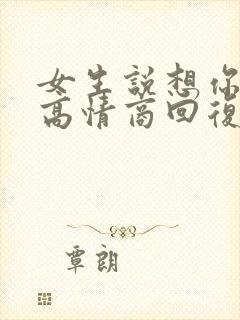 女生說想你
高情商回復
覃朗